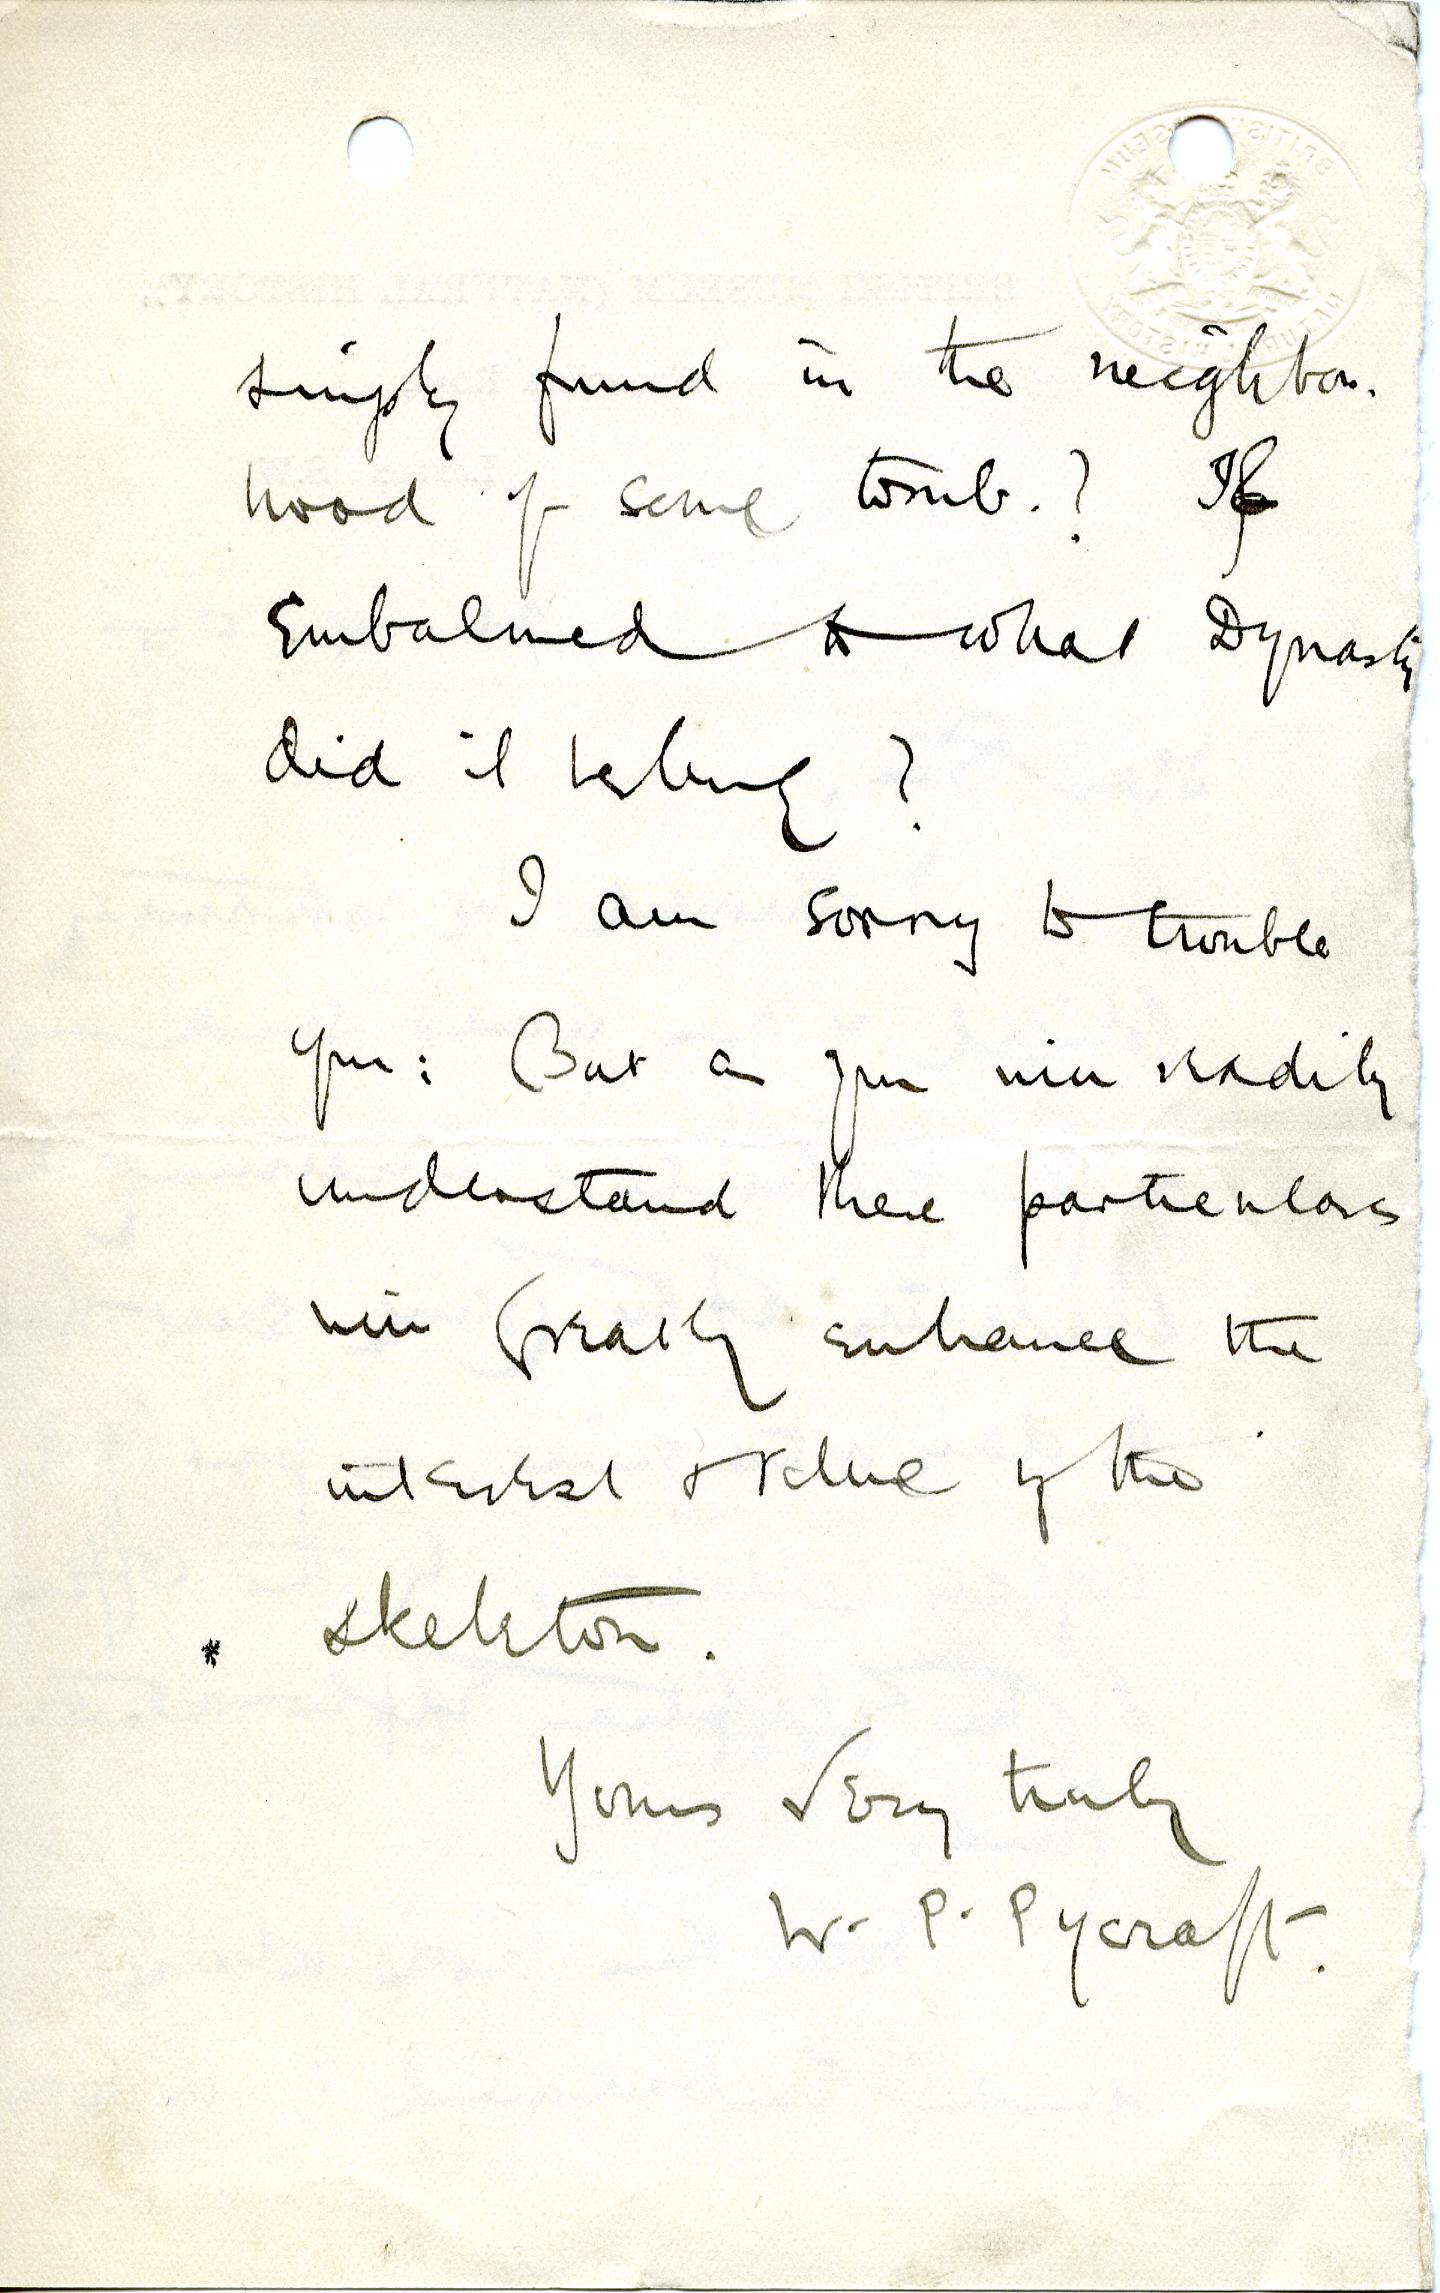 simply found in the neighbour-
hood of some tomb.? If
Embalmed to what Dynasty
did it belong?
I am sorry to trouble
you: But as you will readily
understand these particulars
will greatly enhance the
interest & value of the
* skeleton.
Yours Very truly
W. P. Pycraft.